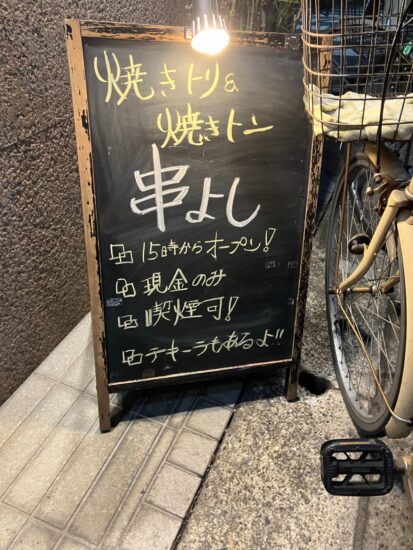 焼きトリ&
焼きトン
串よし
15時からオープン!
現金のみ
喫煙可!
テキーラもあるよ!!